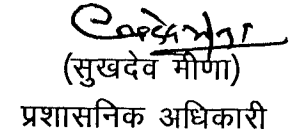 (सुखदेव मीणा)
प्रशासनिक अधिकारी